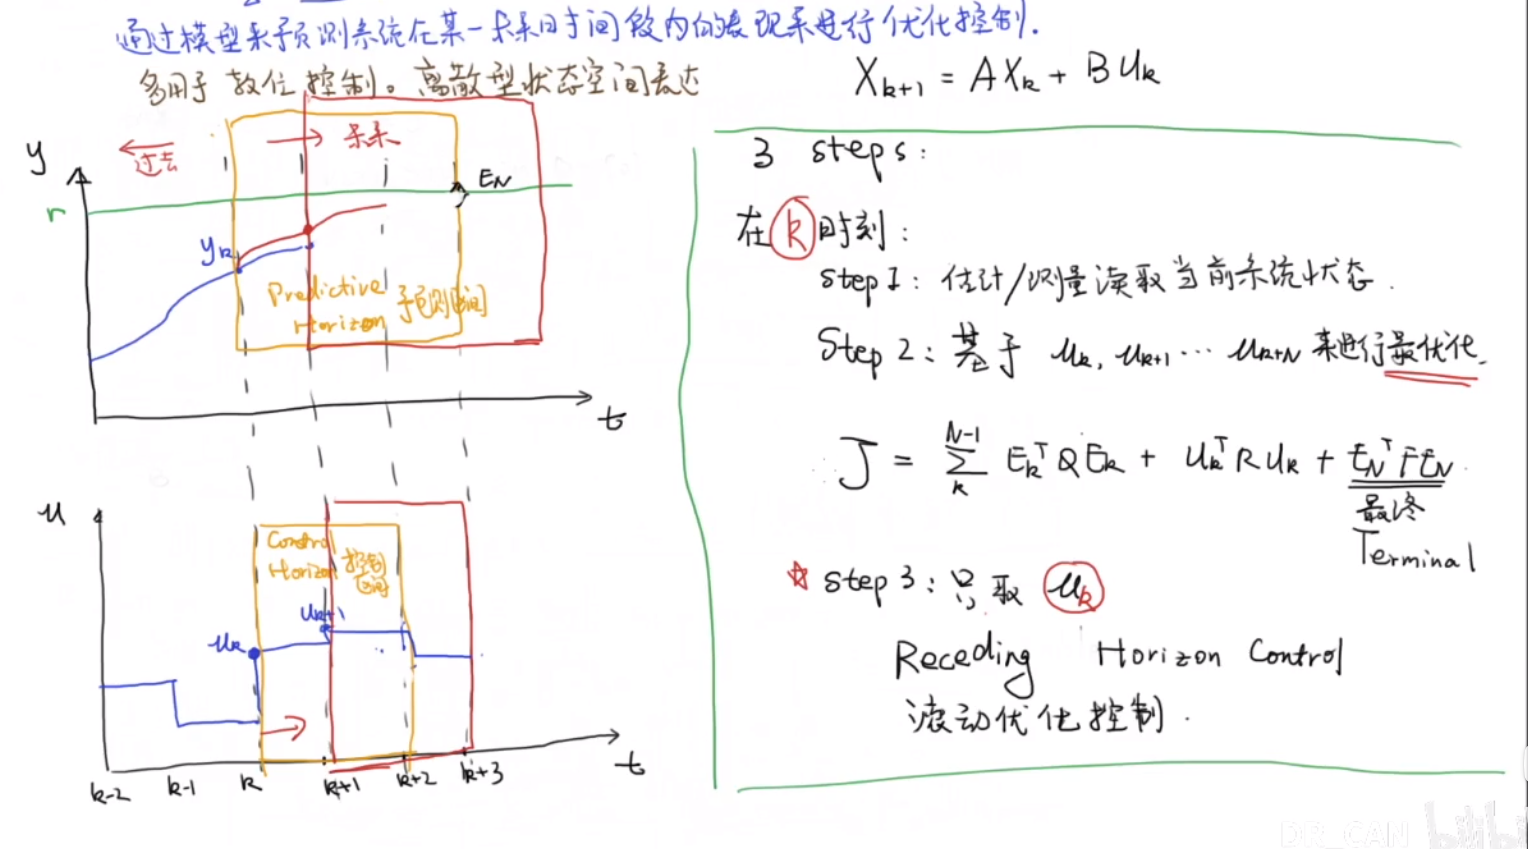 通过模型来预测系统在某一未来时间段内的表现来进行优化控制.
多用于 数位 控制。离散型状态空间表达
X_{k+1} = A X_k + B u_k
y
过去
未来
r
E_N
y_k
Predictive
Horizon 预测区间
t
u
Control
Horizon 控制
区间
u_k
u_{k+1}
k-2 k-1 k k+1 k+2 k+3
t
3 steps:
在 k 时刻:
step1: 估计/测量读取当前系统状态.
Step 2: 基于 u_k, u_{k+1} ... u_{k+N} 来进行最优化.
J = \sum_k^{N-1} E_k^T Q E_k + u_k^T R u_k + E_N^T F E_N
最终
Terminal
☆ step 3: 只取 u_k
Receding Horizon Control
滚动优化控制.
DR_CAN bilibi